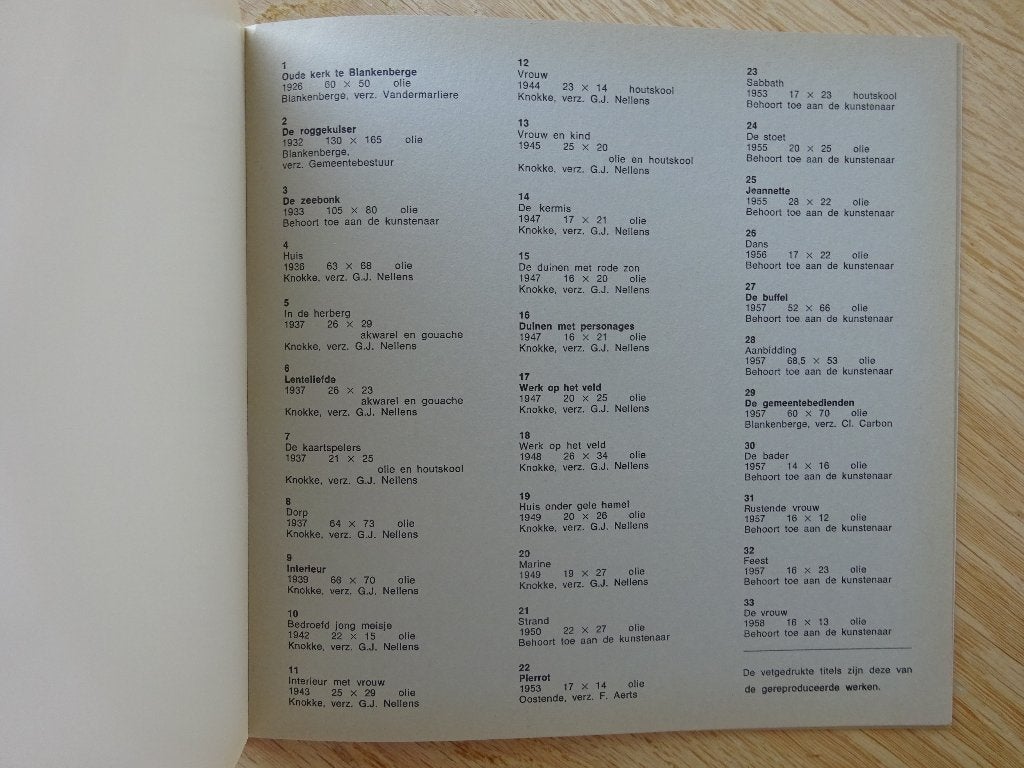 1
Oude kerk te Blankenberge
1926 60 × 50 olie
Blankenberge, verz. Vandermarliere
2
De roggekuiser
1932 130 × 165 olie
Blankenberge,
verz. Gemeentebestuur
3
De zeebonk
1933 105 × 80 olie
Behoort toe aan de kunstenaar
4
Huis
1936 63 × 68 olie
Knokke, verz. G.J. Nellens
5
In de herberg
1937 26 × 29
akwarel en gouache
Knokke, verz. G.J. Nellens
6
Lenteliefde
1937 26 × 23
akwarel en gouache
Knokke, verz. G.J. Nellens
7
De kaartspelers
1937 21 × 25
olie en houtskool
Knokke, verz. G.J. Nellens
8
Dorp
1937 64 × 73 olie
Knokke, verz. G.J. Nellens
9
Interieur
1939 66 × 70 olie
Knokke, verz. G.J. Nellens
10
Bedroefd jong meisje
1942 22 × 15 olie
Knokke, verz. G.J. Nellens
11
Interieur met vrouw
1943 25 × 29 olie
Knokke, verz. G.J. Nellens
12
Vrouw
1944 23 × 14 houtskool
Knokke, verz. G.J. Nellens
13
Vrouw en kind
1945 25 × 20
olie en houtskool
Knokke, verz. G.J. Nellens
14
De kermis
1947 17 × 21 olie
Knokke, verz. G.J. Nellens
15
De duinen met rode zon
1947 16 × 20 olie
Knokke, verz. G.J. Nellens
16
Duinen met personages
1947 16 × 21 olie
Knokke, verz. G.J. Nellens
17
Werk op het veld
1947 20 × 25 olie
Knokke, verz. G.J. Nellens
18
Werk op het veld
1948 26 × 34 olie
Knokke, verz. G.J. Nellens
19
Huis onder gele hemel
1949 20 × 26 olie
Knokke, verz. G.J. Nellens
20
Marine
1949 19 × 27 olie
Knokke, verz. G.J. Nellens
21
Strand
1950 22 × 27 olie
Behoort toe aan de kunstenaar
22
Pierrot
1953 17 × 14 olie
Oostende, verz. F. Aerts
23
Sabbath
1953 17 × 23 houtskool
Behoort toe aan de kunstenaar
24
De stoet
1955 20 × 25 olie
Behoort toe aan de kunstenaar
25
Jeannette
1955 28 × 22 olie
Behoort toe aan de kunstenaar
26
Dans
1956 17 × 22 olie
Behoort toe aan de kunstenaar
27
De buffel
1957 52 × 66 olie
Behoort toe aan de kunstenaar
28
Aanbidding
1957 68,5 × 53 olie
Behoort toe aan de kunstenaar
29
De gemeentebedienden
1957 60 × 70 olie
Blankenberge, verz. Cl. Carbon
30
De bader
1957 14 × 16 olie
Behoort toe aan de kunstenaar
31
Rustende vrouw
1957 16 × 12 olie
Behoort toe aan de kunstenaar
32
Feest
1957 16 × 23 olie
Behoort toe aan de kunstenaar
33
De vrouw
1958 16 × 13 olie
Behoort toe aan de kunstenaar
De vetgedrukte titels zijn deze van
de gereproduceerde werken.